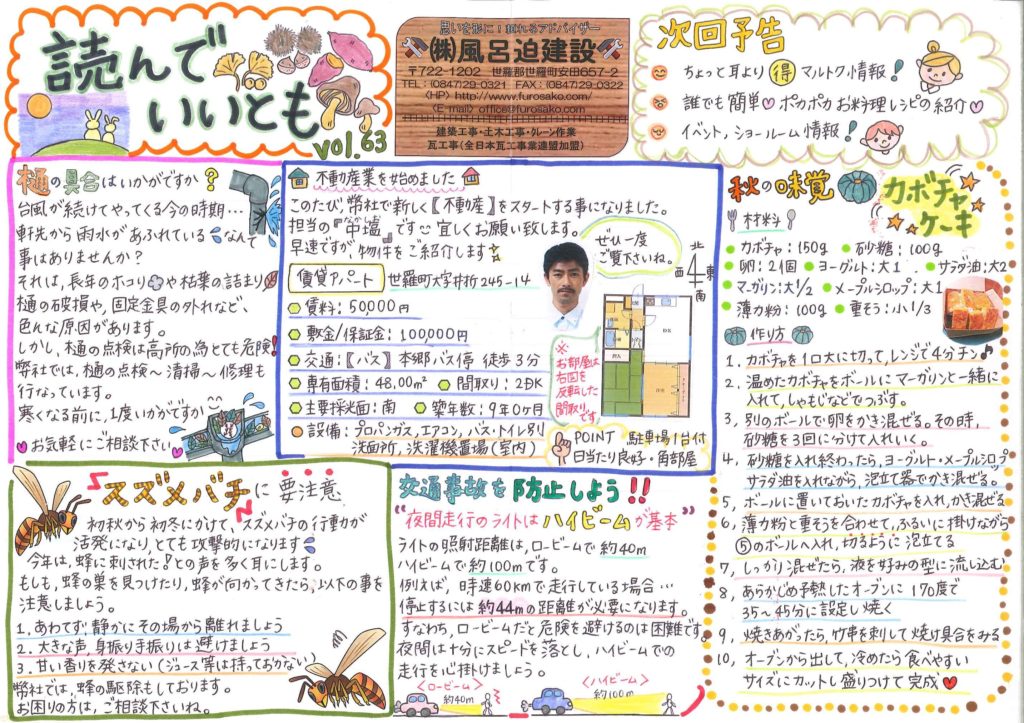 読んで
いいとも
vol.63
思いを形に!頼れるアドバイザー
㈱風呂迫建設
〒722-1202 世羅郡世羅町安田657-2
TEL:(0847)29-0321 FAX:(0847)29-0322
〈HP〉http://www.furosako.com/
〈E-mail〉office@furosako.com
建築工事・土木工事・クレーン作業
瓦工事(全日本瓦工事業連盟加盟)
次回予告
ちょっと耳より得マルトク情報!
誰でも簡単♡ポカポカお料理レシピの紹介♡
イベント,ショールーム情報!
樋の具合はいかがですか?
台風が続けてやってくる今の時期…
軒先から雨水があふれている なんて
事はありませんか?
それは,長年のホコリや枯葉の詰まり
樋の破損や,固定金具の外れなど、
色んな原因があります。
しかし,樋の点検は高所の為とても危険!
弊社では,樋の点検〜清掃〜修理も
行なっています。
寒くなる前に,1度いかがですか
♥お気軽にご相談下さい♥
不動産業を始めました
このたび,弊社で新しく〖不動産〗をスタートする事になりました。
担当の『中塩』です 宜しくお願い致します。
早速ですが,物件をご紹介します
ぜひ一度
ご覧下さいね。
賃貸アパート 世羅町大字井折245-14
賃料:50,000円
敷金/保証金:100,000円
交通:〖バス〗本郷バス停 徒歩3分
専有面積:48.00㎡ 間取り:2DK
主要採光面:南 築年数:9年0ヶ月
設備:プロパンガス,エアコン,バス・トイレ別
洗面所,洗濯機置場(室内)
北
西 東
南
※
お部屋は
右図を
反転した
間取りです
POINT 駐車場1台付
日当たり良好・角部屋
秋の味覚
カボチャ
ケーキ
材料
カボチャ:150g 砂糖:100g
卵:2個 ヨーグルト:大1 サラダ油:大2
マーガリン:大1/2 メープルシロップ:大1
薄力粉:100g 重そう:小1/3
作り方
1. カボチャを1口大に切って,レンジで4分チン♪
2. 温めたカボチャをボールにマーガリンと一緒に
入れて,しゃもじなどでつぶす。
3. 別のボールで卵をかき混ぜる。その時,
砂糖を3回に分けて入れいく。
4. 砂糖を入れ終わったら,ヨーグルト・メープルシロップ
サラダ油を入れながら,泡立て器でかき混ぜる。
5. ボールに置いておいたカボチャを入れ,かき混ぜる
6. 薄力粉と重そうを合わせて,ふるいに掛けながら
⑤のボールへ入れ,切るように泡立てる
7. しっかり混ぜたら,液を好みの型に流し込む
8. あらかじめ予熱したオーブンに170度で
35〜45分に設定し焼く
9. 焼きあがったら,竹串を刺して焼け具合をみる
10. オーブンから出して,冷めたら食べやすい
サイズにカットし盛りつけて完成♥
スズメバチに要注意
初秋から初冬にかけて,スズメバチの行動が
活発になり,とても攻撃的になります
今年は,蜂に刺された!との声を多く耳にします。
もしも,蜂の巣を見つけたり,蜂が向かってきたら,以下の事を
注意しましょう。
1. あわてず静かにその場から離れましょう
2. 大きな声,身振り手振りは避けましょう
3. 甘い香りを発さない(ジュース等は持っておかない)
弊社では,蜂の駆除もしております。
お困りの方は,ご相談下さいね。
交通事故を防止しよう!!
"夜間走行のライトはハイビームが基本"
ライトの照射距離は,ロービームで約40m
ハイビームで約100mです。
例えば,時速60kmで走行している場合…
停止するには約44mの距離が必要になります。
すなわち,ロービームだと危険を避けるのは困難です。
夜間は十分にスピードを落とし,ハイビームでの
走行を心掛けましょう。
〈ロービーム〉
約40m
〈ハイビーム〉
約100m